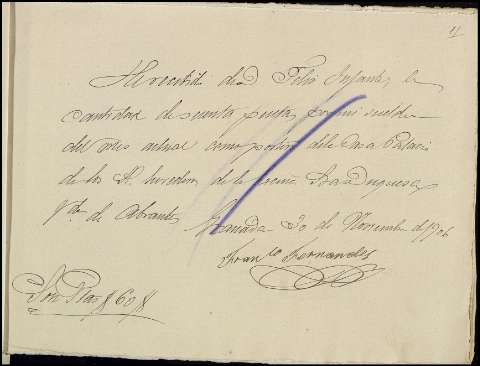 4
He recibido de Dn Felix Infantes la
cantidad de sesenta pesetas por mi sueldo
del mes actual como portero de la Casa Palacio
de los S. herederos de la Excma Sra Duquesa
Vda de Abrantes Granada 30 de Noviembre de 1906
Franco Fernandez
Son Ptas # 60 #